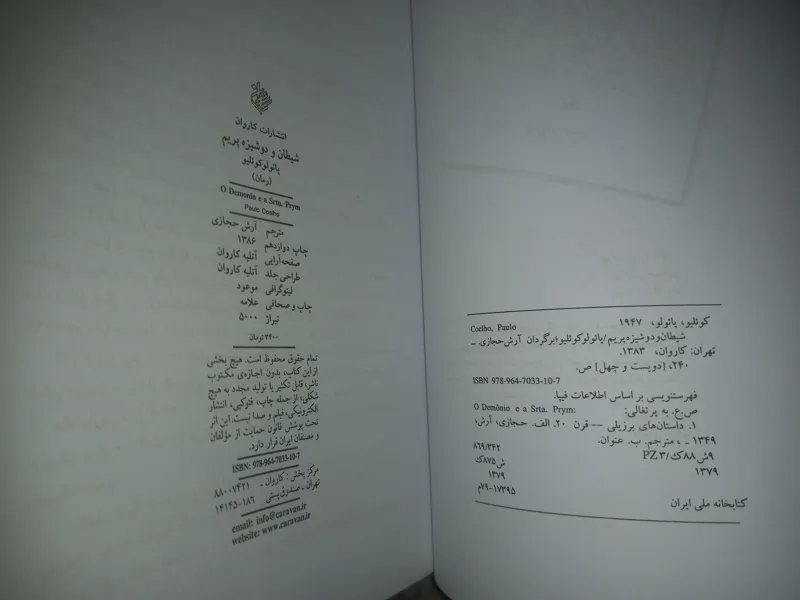 کوئلیو، پائولو، ۱۹۴۷
Coelho, Paulo
شیطان و دوشیزه پریم/پائولو کوئلیو؛ برگردان آرش حجازی. ـ
تهران: کاروان، ۱۳۸۳.
۲۴۰، [دویست و چهل] ص.
ISBN 978-964-7033-10-7
فهرستنویسی بر اساس اطلاعات فیپا.
ص.ع. به پرتغالی: O Demônio e a Srta. Prym:
۱. داستان‌های برزیلی — قرن ۲۰. الف. حجازی، آرش،
۱۳۴۹ ـ ، مترجم. ب. عنوان.
۸۶۹/۳۴۲
۹ش۸۸ک/PZ ۳
ش۸۷۵ک
۱۳۷۹
۱۳۷۹
۷۹م-۱۷۳۹۵
کتابخانه ملی ایران
انتشارات کاروان
شیطان و دوشیزه پریم
پائولو کوئلیو
(رمان)
O Demonio e a Srta. Prym
Paulo Coelho
مترجم آرش حجازی
چاپ دوازدهم ۱۳۸۶
صفحه‌آرایی آتلیه کاروان
طراحی جلد آتلیه کاروان
لیتوگرافی موعود
چاپ و صحافی علامه
تیراژ ۵۰۰۰
۳۲۰۰ تومان
تمام حقوق محفوظ است. هیچ بخشی
از این کتاب، بدون اجازه‌ی مکتوب
ناشر، قابل تکثیر یا تولید مجدد به هیچ
شکلی، از جمله چاپ، فتوکپی، انتشار
الکترونیکی، فیلم و صدا نیست. این اثر
تحت پوشش قانون حمایت از مؤلفان
و مصنفان ایران قرار دارد.
ISBN: 978-964-7033-10-7
مرکز پخش: کاروان - ۸۸۰۰۷۴۲۱
تهران ـ صندوق پستی ۱۸۶-۱۴۱۴۵
email: info@caravan.ir
website: www.caravan.ir